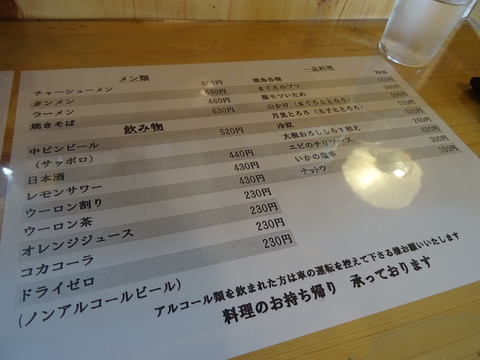 メン類
チャーシューメン
タンメン 630円
ラーメン 460円
焼きそば 630円
飲み物
中ビンビール 520円
(サッポロ)
日本酒 440円
レモンサワー 430円
ウーロン割り 430円
ウーロン茶 230円
オレンジジュース 230円
コカコーラ 230円
ドライゼロ 230円
(ノンアルコールビール)
一品料理
まぐろのブツ
豚モツいため
山かけ(まぐろととろろ)
月見とろろ(玉子ととろろ)
冷奴
大根おろししらす和え
エビのチリソース
いかの塩辛 300円
ナットウ 150円
アルコール類を飲まれた方は車の運転を控えて下さる様お願いいたします
料理のお持ち帰り 承っております